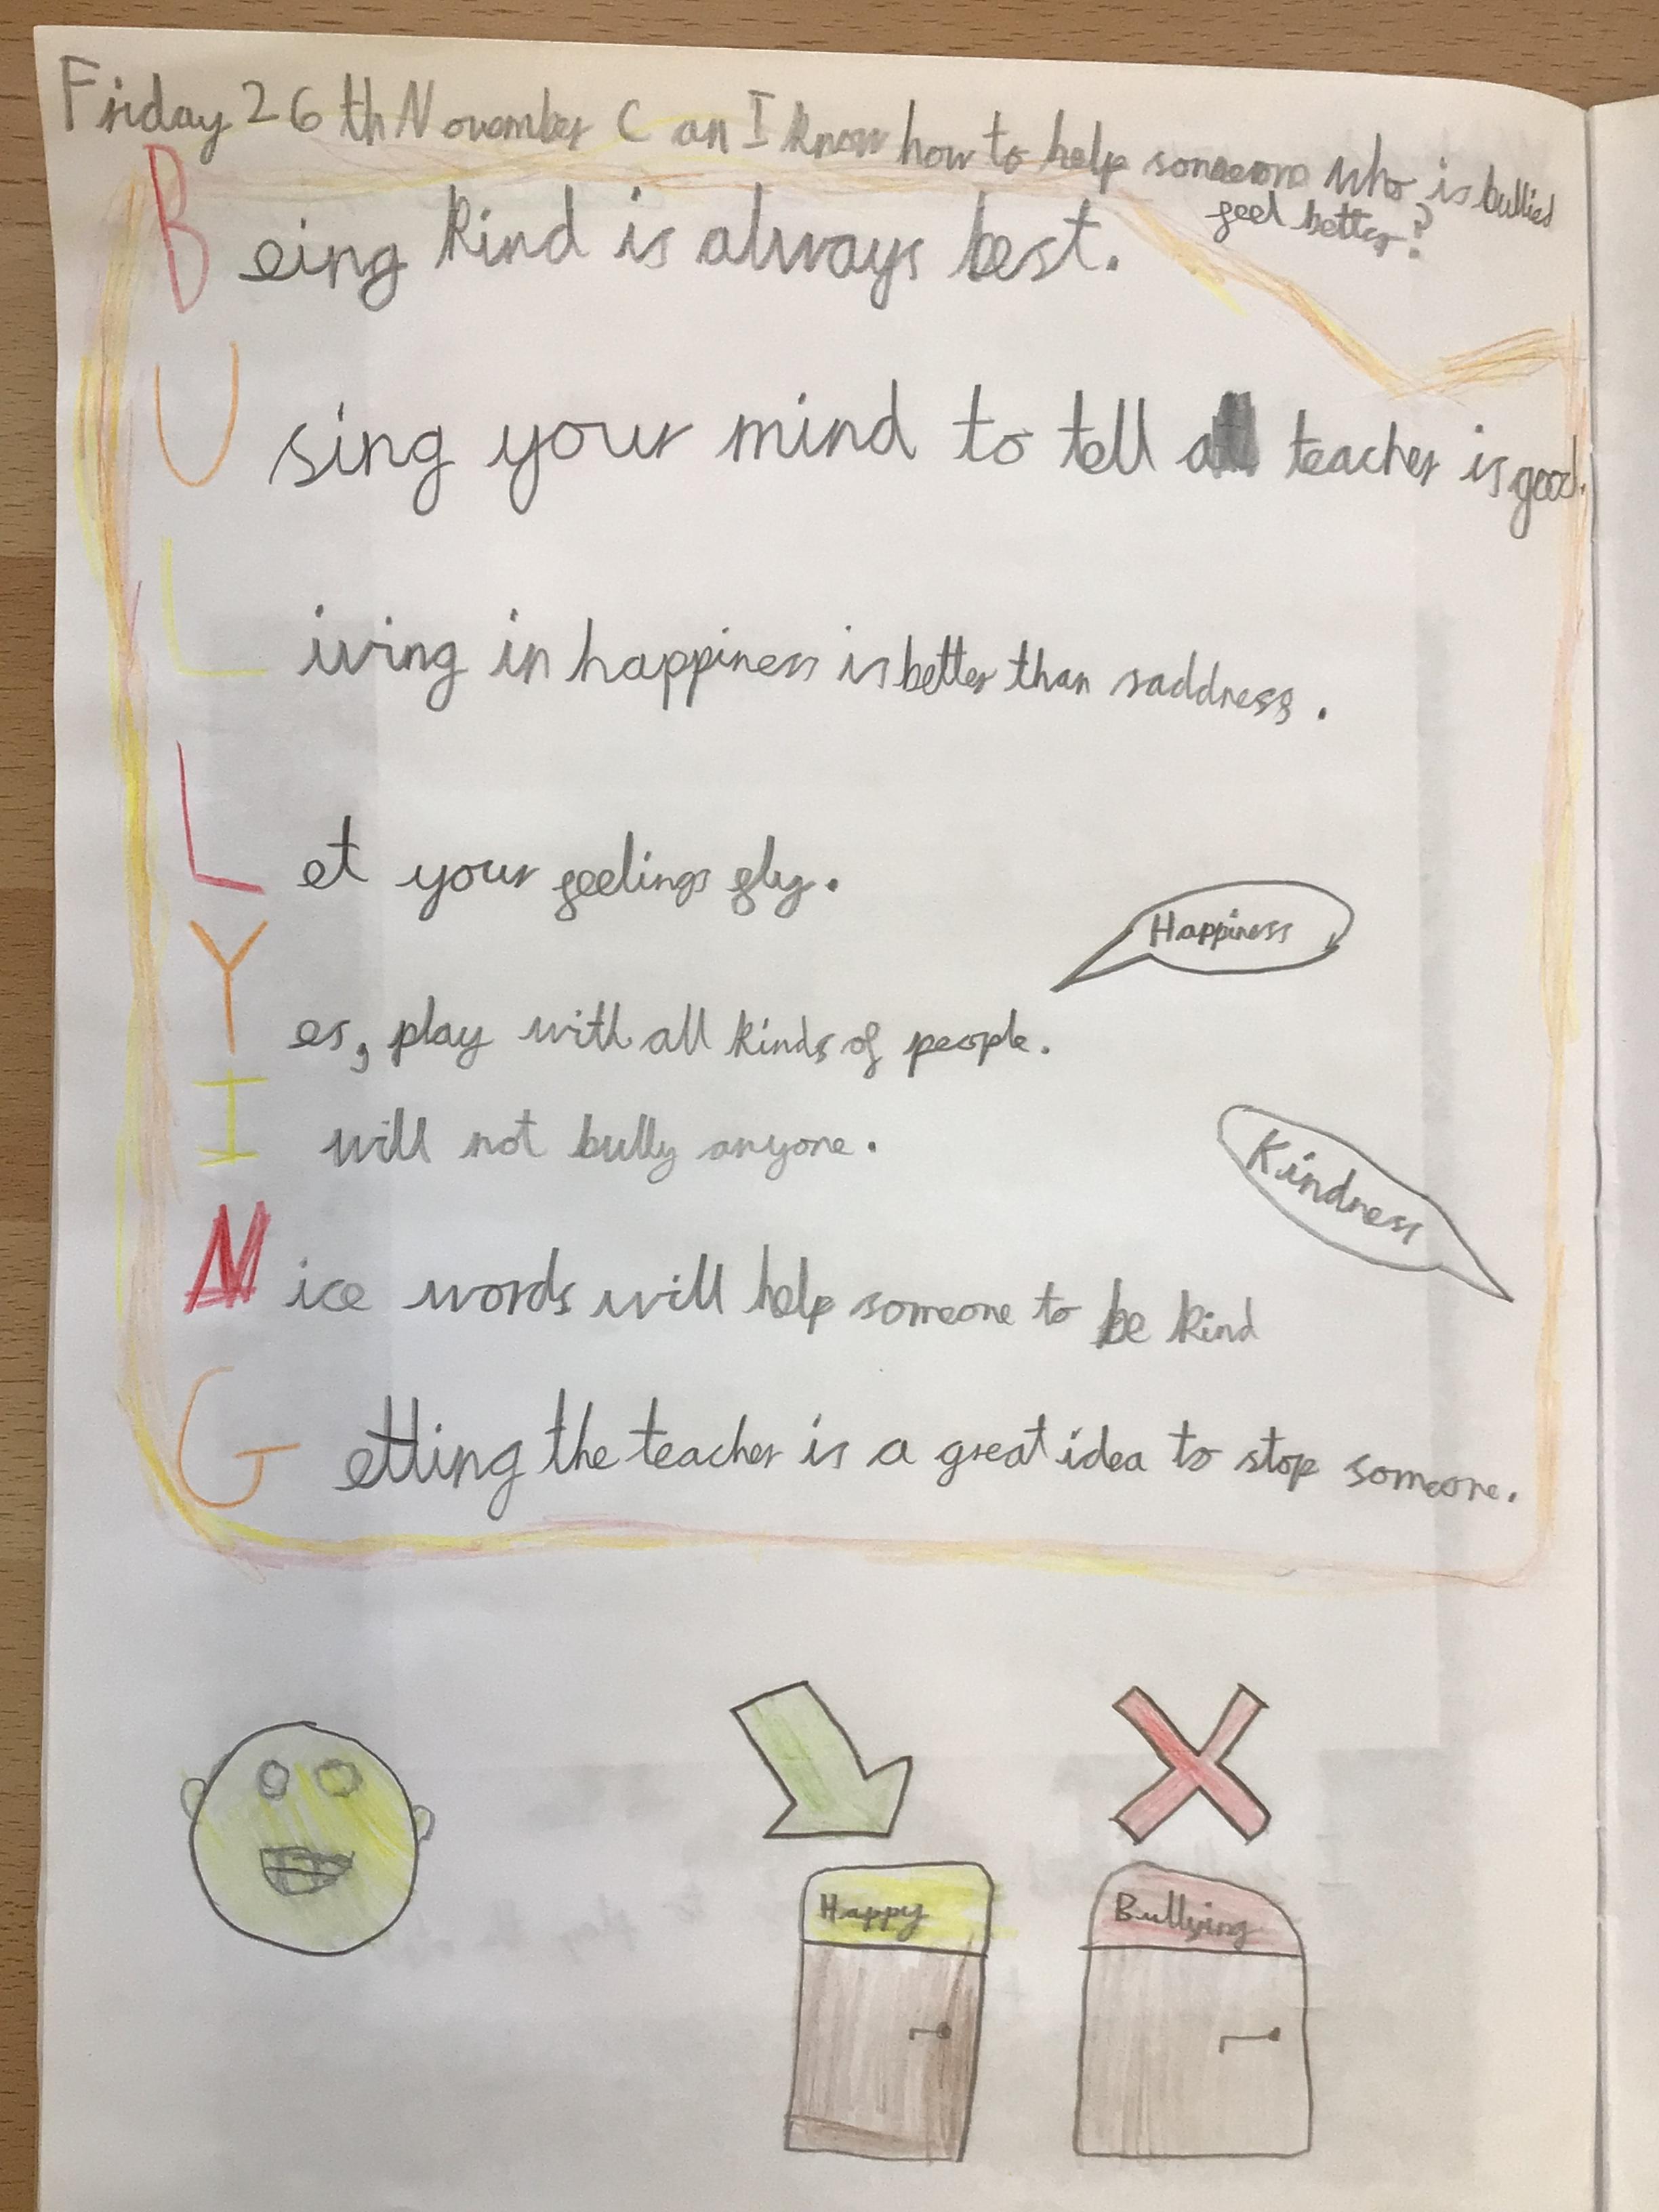 Friday 26th November Can I know how to help someone who is bullied
feel better?
Being kind is always best.
Using your mind to tell a teacher is good.
Living in happiness is better than saddness.
Let your feelings fly.
Happiness
Yes, play with all kinds of people.
I will not bully anyone.
Kindness
Nice words will help someone to be kind
Getting the teacher is a great idea to stop someone.
Happy
Bullying